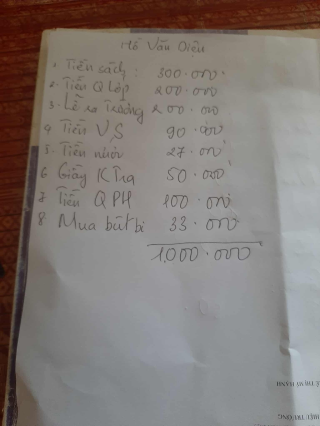 Hồ Văn Diệu
1. Tiền sách: 300.000
2. Tiền Q Lớp 200.000
3. Lễ ra Trường 200.000
4 Tiền V,S 90.000
5. Tiền nước 27.000
6 Giấy K Tra 50.000
7 Tiền Q PH 100.000
8 Mua bút bi 33.000
1,000.000